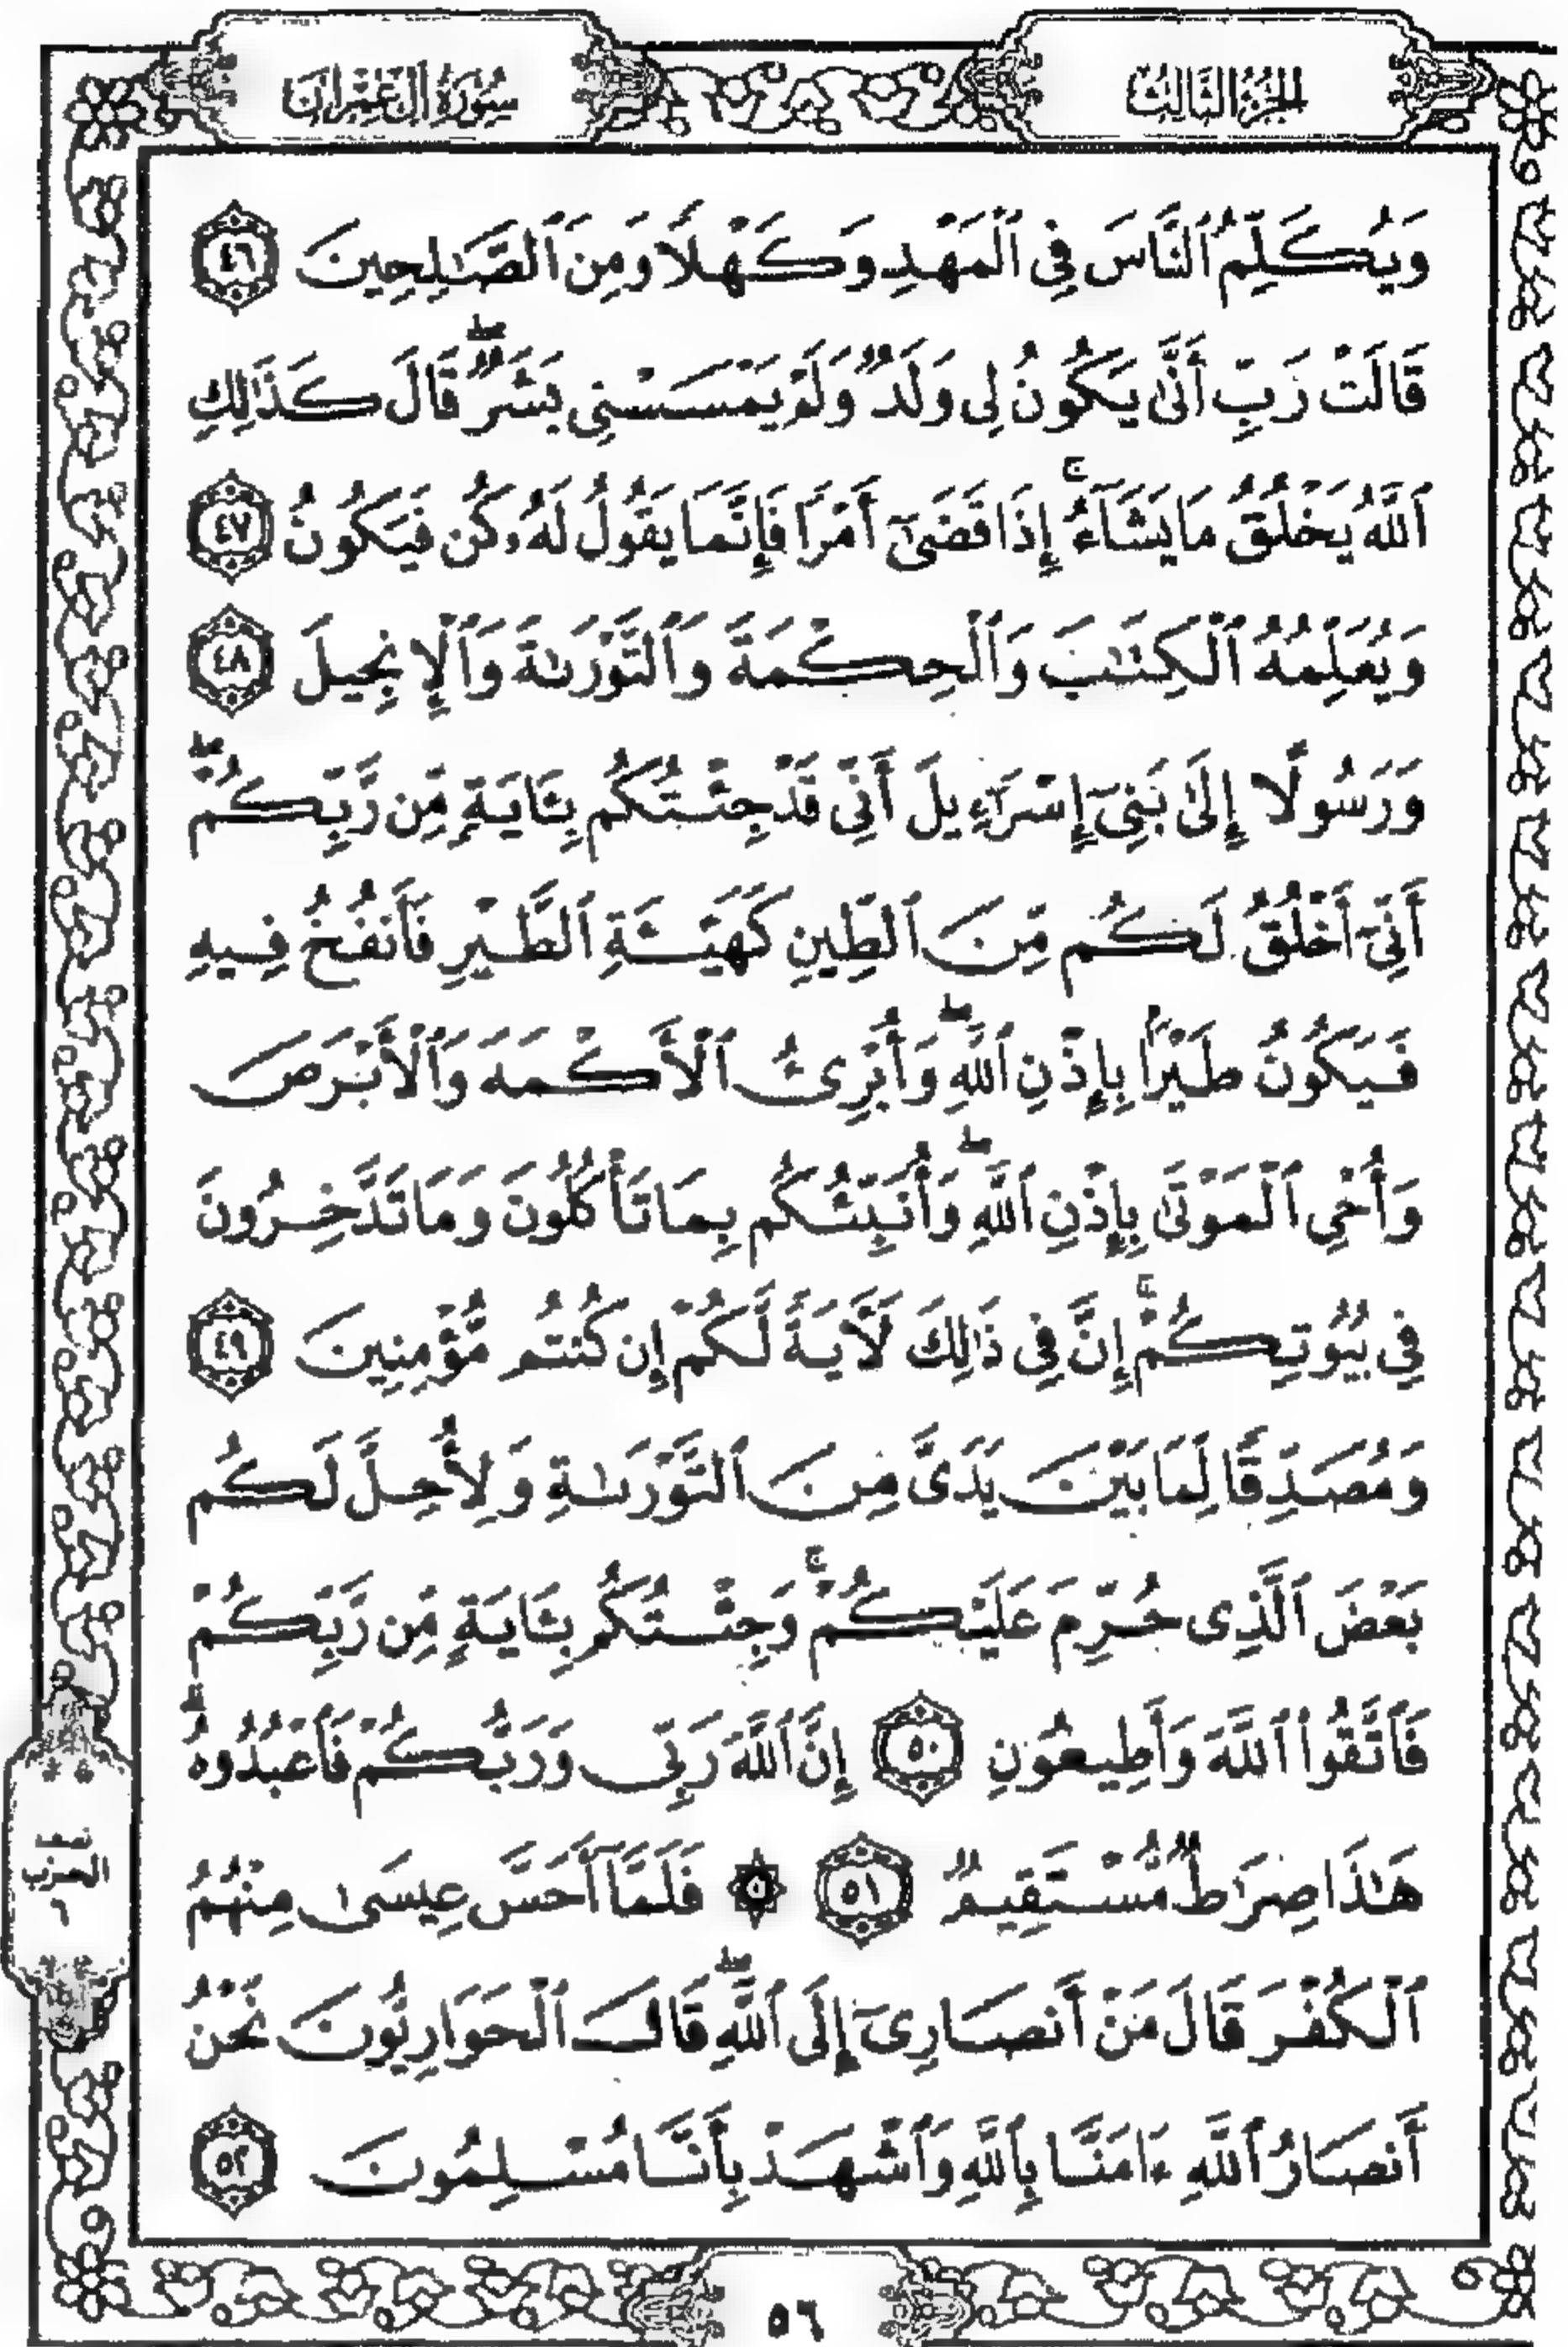 الجزء الثالث
سورة آل عمران
وَيُكَلِّمُ ٱلنَّاسَ فِى ٱلْمَهْدِ وَكَهْلًا وَمِنَ ٱلصَّـٰلِحِينَ ٤٦
قَالَتْ رَبِّ أَنَّىٰ يَكُونُ لِى وَلَدٌ وَلَمْ يَمْسَسْنِى بَشَرٌۖ قَالَ كَذَٰلِكِ
ٱللَّهُ يَخْلُقُ مَا يَشَآءُۚ إِذَا قَضَىٰٓ أَمْرًا فَإِنَّمَا يَقُولُ لَهُۥ كُن فَيَكُونُ ٤٧
وَيُعَلِّمُهُ ٱلْكِتَـٰبَ وَٱلْحِكْمَةَ وَٱلتَّوْرَىٰةَ وَٱلْإِنجِيلَ ٤٨
وَرَسُولًا إِلَىٰ بَنِىٓ إِسْرَٰٓءِيلَ أَنِّى قَدْ جِئْتُكُم بِـَٔايَةٍ مِّن رَّبِّكُمْۖ
أَنِّىٓ أَخْلُقُ لَكُم مِّنَ ٱلطِّينِ كَهَيْـَٔةِ ٱلطَّيْرِ فَأَنفُخُ فِيهِ
فَيَكُونُ طَيْرًۢا بِإِذْنِ ٱللَّهِۖ وَأُبْرِئُ ٱلْأَكْمَهَ وَٱلْأَبْرَصَ
وَأُحْىِ ٱلْمَوْتَىٰ بِإِذْنِ ٱللَّهِۖ وَأُنَبِّئُكُم بِمَا تَأْكُلُونَ وَمَا تَدَّخِرُونَ
فِى بُيُوتِكُمْۚ إِنَّ فِى ذَٰلِكَ لَـَٔايَةً لَّكُمْ إِن كُنتُم مُّؤْمِنِينَ ٤٩
وَمُصَدِّقًا لِّمَا بَيْنَ يَدَىَّ مِنَ ٱلتَّوْرَىٰةِ وَلِأُحِلَّ لَكُم
بَعْضَ ٱلَّذِى حُرِّمَ عَلَيْكُمْۚ وَجِئْتُكُم بِـَٔايَةٍ مِّن رَّبِّكُمْ
فَٱتَّقُوا۟ ٱللَّهَ وَأَطِيعُونِ ٥٠ إِنَّ ٱللَّهَ رَبِّى وَرَبُّكُمْ فَٱعْبُدُوهُۗ
هَـٰذَا صِرَٰطٌ مُّسْتَقِيمٌ ٥١ ۞ فَلَمَّآ أَحَسَّ عِيسَىٰ مِنْهُمُ
ٱلْكُفْرَ قَالَ مَنْ أَنصَارِىٓ إِلَى ٱللَّهِۖ قَالَ ٱلْحَوَارِيُّونَ نَحْنُ
أَنصَارُ ٱللَّهِ ءَامَنَّا بِٱللَّهِ وَٱشْهَدْ بِأَنَّا مُسْلِمُونَ ٥٢
الحزب
٦
٥٦